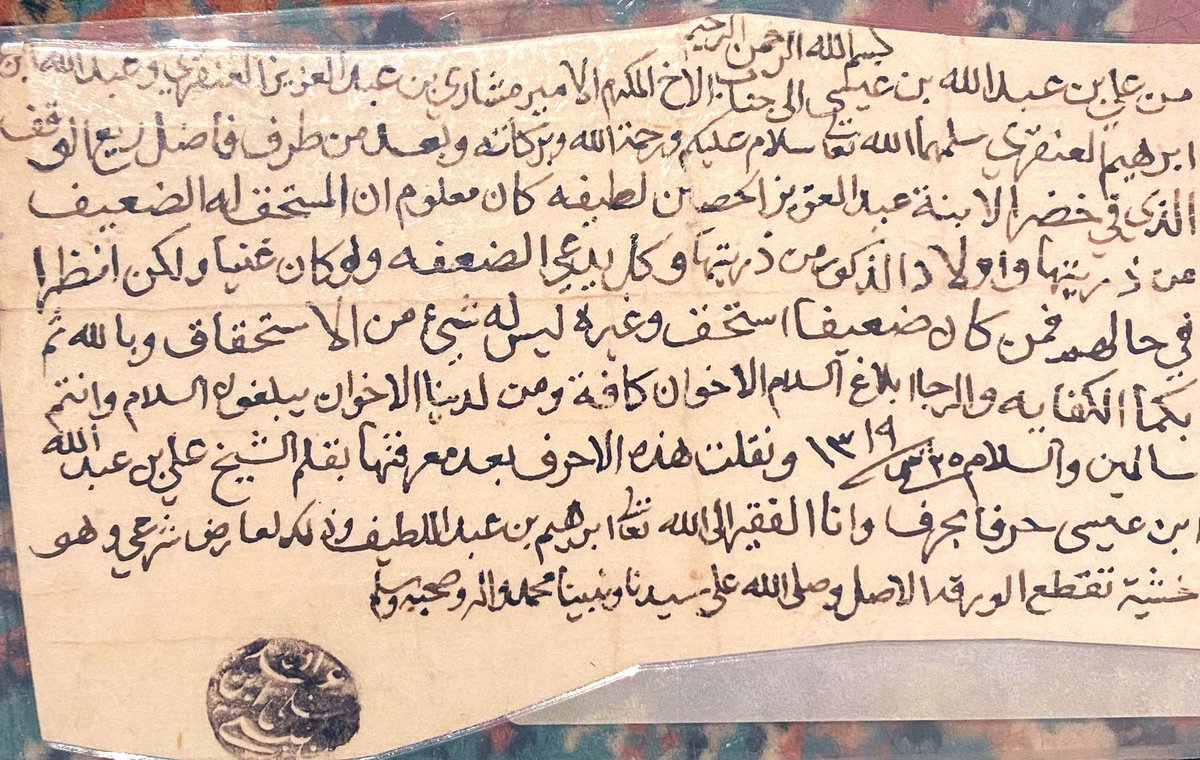 بسم الله الرحمن الرحيم
من علي بن عبد الله بن عيسى الى جناب الاخ المكرم الامير مشاري بن عبد العزيز العنقري وعبد الله ابن
ابرهيم العنقري سلمهما الله تعا سلام عليكم ورحمة الله وبركاته وبعد من طرف فاضل ريع الوقف
الذي في خضرا لابنة عبد العزيز الحصين لطيفه كان معلوم ان المستحق له الضعيف
من ذريتها واولاد الذكور من ذريتها وكل يدعي الضعفه ولو كان غنيا ولكن انظرا
في حالهم فمن كان ضعيفا استحق وغيره ليس له شيء من الاستحقاق وبالله ثم
بكما الكفايه والرجا ابلاغ السلام الاخوان كافة ومن لدينا الاخوان يبلغوه السلام وانتم
سالمين والسلام ١٣١٩ ونقلت هذه الاحرف بعد معرفتها بقلم الشيخ علي بن عبد الله
ابن عيسى حرفا بحرف وانا الفقير الى الله تعا ابرهيم بن عبد اللطيف وذلك لعارض شرعي وهو
خشية تقطع الورقه الاصل وصلى الله على سيدنا ونبينا محمد واله وصحبه وسلم